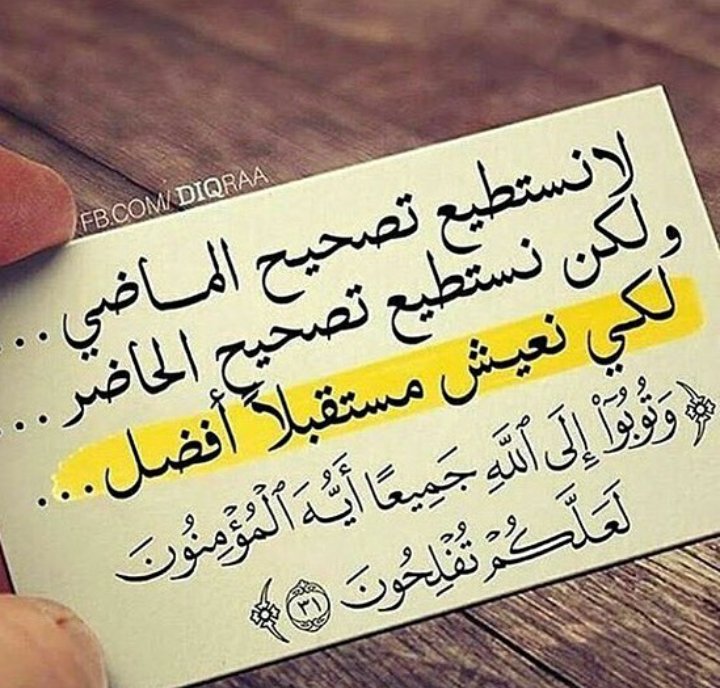 FB.COM/ DIQRAA
لانستطيع تصحيح المـاضي ...
ولكن نستطيع تصحيح الحاضر ...
لكي نعيش مستقبلاً أفضل ...
﴿ وَتُوبُوٓا۟ إِلَى ٱللَّهِ جَمِيعًا أَيُّهَ ٱلْمُؤْمِنُونَ
لَعَلَّكُمْ تُفْلِحُونَ ٣١ ﴾